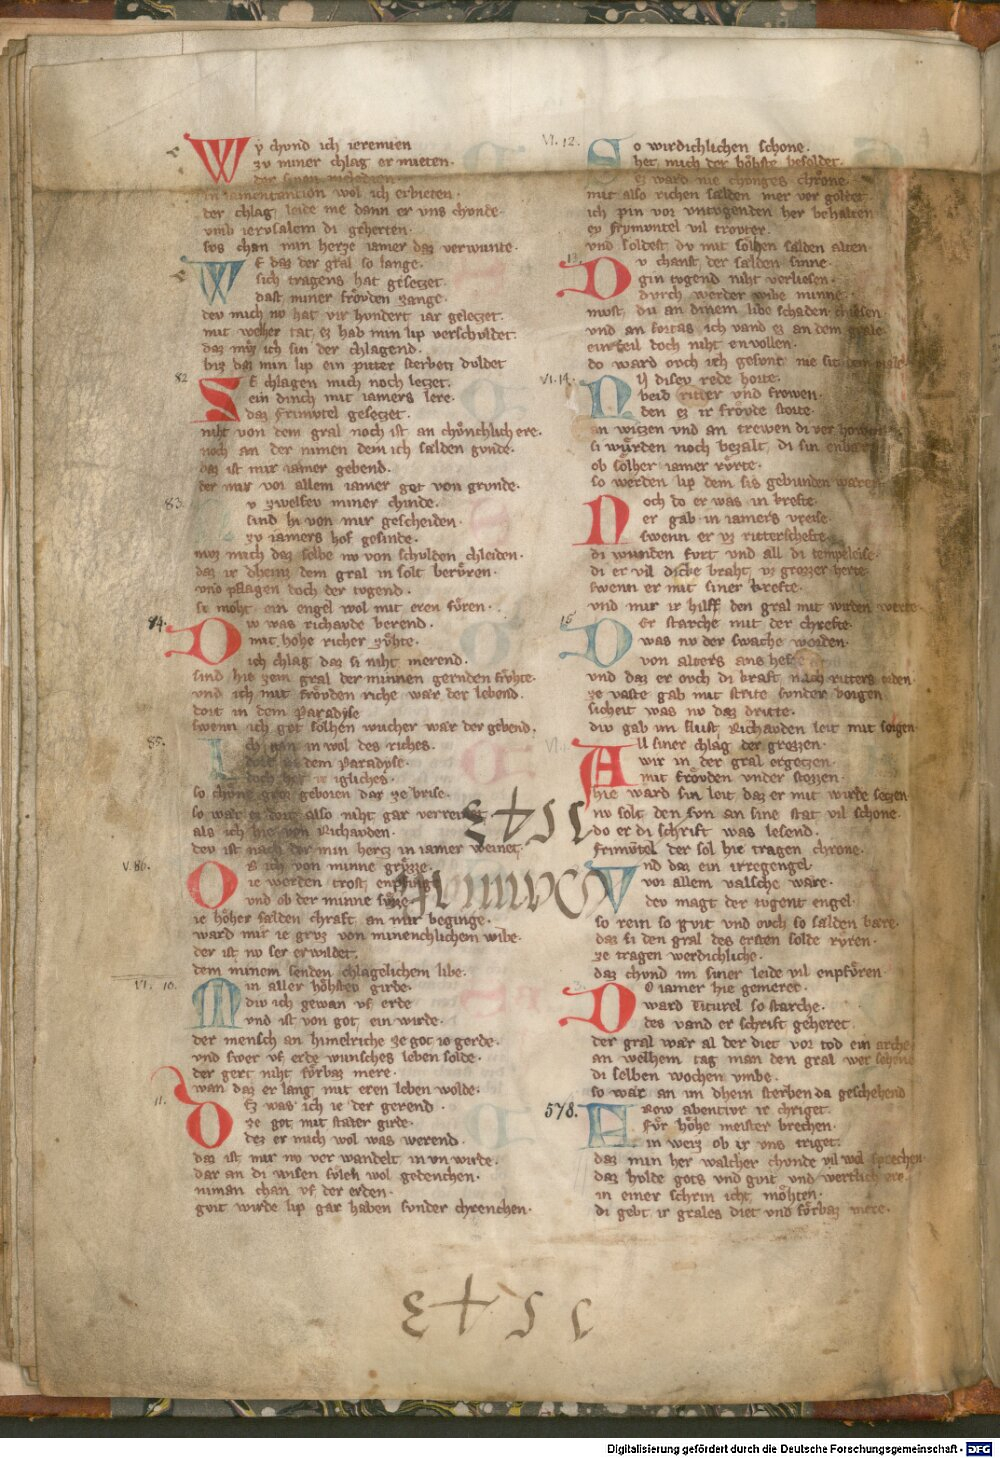 Wy chvnd ich ieremien
zv miner chlag er mueten.
in lamentantion wol ich erbieten.
der chlag leide me dann er vns chvnde.
vmb iervsalem di geherten.
svs chan min herze iamer daz verwunte.
WE daz der gral so lange.
sich tragens hat gesetzet.
dast miner frövden zange.
dev mich no hat vir hundert iar geletzet.
mit welher tat ez hab min lip verschvldet.
daz mvz ich sin der chlagend.
biz daz min lip ein pitter sterben dvldet
82
SE chlagen mich noch letzet.
sein dinch mit iamers lere.
daz frimvtel gesetzet.
niht von dem gral noch ist an chönchlich ere.
noch an der nimen dem ich sælden gunde.
daz ist mir iamer gebend.
der mir vor allem iamer got von grvnde.
83.
v zwelfev miner chinde.
sind hi von mir gescheiden.
zv iamers hof gesinde.
mvz mich daz selbe no von schvlden chleiden.
daz ir dheinz dem gral in solt berüren.
vnd pflagen doch der tvgend.
si möht ein engel wol mit eren füren.
84.
Div was richavde berend.
mit hohe richer zühte.
ich chlag daz si niht merend.
sind hie zem gral der minnen gernden frühte.
vnd ich mit frövden riche wær der lebend.
dort in dem Paradyse
swenn ich got solhen wucher wær der gebend.
85.
Ich gan in wol des riches.
dort in dem Paradyse.
doch her ir igliches.
so chöne groz geborn dar ze prise.
so wær ez dort also niht gar verreinet
als ich hie von Richavden.
dev ist nach der min hertz in iamer weinet.
V. 86.
OB ich von minne grözze.
ie werden trost enpfinge
vnd ob der minne süze
ie höher sælden chraft an mir beginge.
ward mir ie grvz von minenchlichem wibe.
der ist no ser erwildet.
dem minem senden chlagelichem libe.
VI. 10.
Min aller höhsten girde.
div ich gewan vf erde
vnd ist von got ein wirde.
der mensch an himelriche ze got io gerde.
vnd swer vf erde wunsches leben solde.
der gert niht fürbaz mere.
wan daz er lang mit eren leben wolde.
11.
DEz was ich ie der gerend.
ze got mit stæter girde.
dez er mich wol was werend.
daz ist mir no ver wandelt in vn wirde.
dar an di wisen svleh wol gedenchen.
niman chan vf der erden.
gvit wirde lip gar haben svnder chrenchen.
VI. 12.
So wirdichlichen schone.
het mich der höhste besoldet.
Ez ward nie chvnges chröne.
mit also richen sælden mer vor goldet
ich pin vor vntvgenden her behalten
ey frymvntel vil trovter.
vnd soldest dv mit solhen sælden alten.
13.
Dv chanst der sælden sinne.
gin tvgend niht verliesen.
dvrch werder wibe minne.
mvst dv an dinem libe schaden chiesen.
vnd an sortas ich vand ez an dem grale.
ein teil doch niht envollen.
do ward ovch ich gesvnt nie sit
VI. 14.
NV disev rede horte.
beid ritter vnd frowen.
den ez ir frövde storte.
an witzen vnd an trewen di ver
si würden noch bezalt di sin
ob sölher iamer rürte.
so werden lip dem sis gebunden
Noch do er was in krefte.
er gab in iamers vreise.
swenn er vz ritterschefte
di wunden fvrt vnd all di templeise.
di er vil dicke braht vz grozzer herte
swenn er mit siner krefte.
vnd mir ir hilff den gral mit wirden werte
15
Der starche mit der chrefte.
was nv der swache worden.
von alters ans
vnd daz er ovch di kraft nach ritters orden.
ze vaste gab mit strite svnder borgen
sicheit was nv daz dritte.
div gab im slust Richavden leit mit sorgen.
All siner chlag der grozzen.
wir in der gral ergetzen.
mit frövden vnder stozzen.
hie ward sin leit daz er mit wirde setzen
nv solt den svn an sine stat vil schone.
do er di schrift was lesend.
frimvtel der sol hie tragen chrone.
1543
Vnd daz ein irregengel
vor allem valsche wære.
dev magt der tvgent engel.
so rein so gvit vnd ovch so sælden bære.
daz si den gral des ersten solde rüren.
ze tragen werdichliche.
daz chvnd im siner leide vil enpfören.
3.
DO iamer hie gemeret.
ward Titurel so starche.
des vand er schrift geheret
der gral wær al der diet vor tod ein arche
an welhem tag man den gral wer sehend
di selben wochen vmbe.
so wær an im dhein sterben da geschehend
578.
Frow abentivr ir chriget.
für höhe meister brechen.
in weiz ob ir vns triget.
daz min her walther chvnde vil wol sprechen
daz hvlde gots vnd gvit vnd wertlich ere.
in einer schrin icht möhten.
di gebt ir grales diet vnd fürbaz mere.
1543
Digitalisierung gefördert durch die Deutsche Forschungsgemeinschaft - DFG